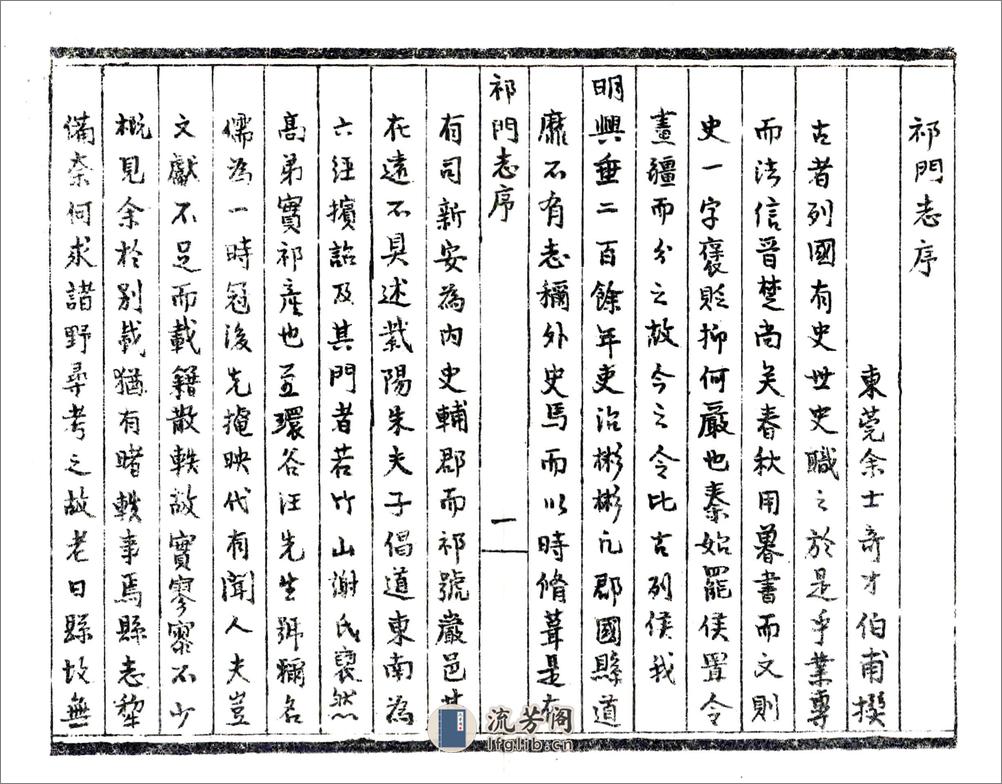 祁門志序
東莞余士奇才伯甫撰
古者列國有史世史職之於是乎業專
而法信晉楚尚矣春秋用魯書而文則
史一字褒貶抑何嚴也秦始罷侯置令
畫疆而分之故今之令比古列侯我
明興垂二百餘年吏治彬彬凡郡國縣道
靡不有志稱外史焉而以時脩葺是在
祁門志序
一
有司新安為內史輔郡而祁號巖邑其
在遠不具述紫陽朱夫子倡道東南為
六經擯詔及其門者若竹山謝氏褎然
高弟實祁產也至環谷汪先生號稱名
儒為一時冠後先掩映代有聞人夫豈
文獻不足而載籍散軼故實寥寥不少
概見余於別載猶有睹軼事焉縣志犂
備柰何求諸野尋考之故老曰縣故無
流芳閣
lfglib.cn